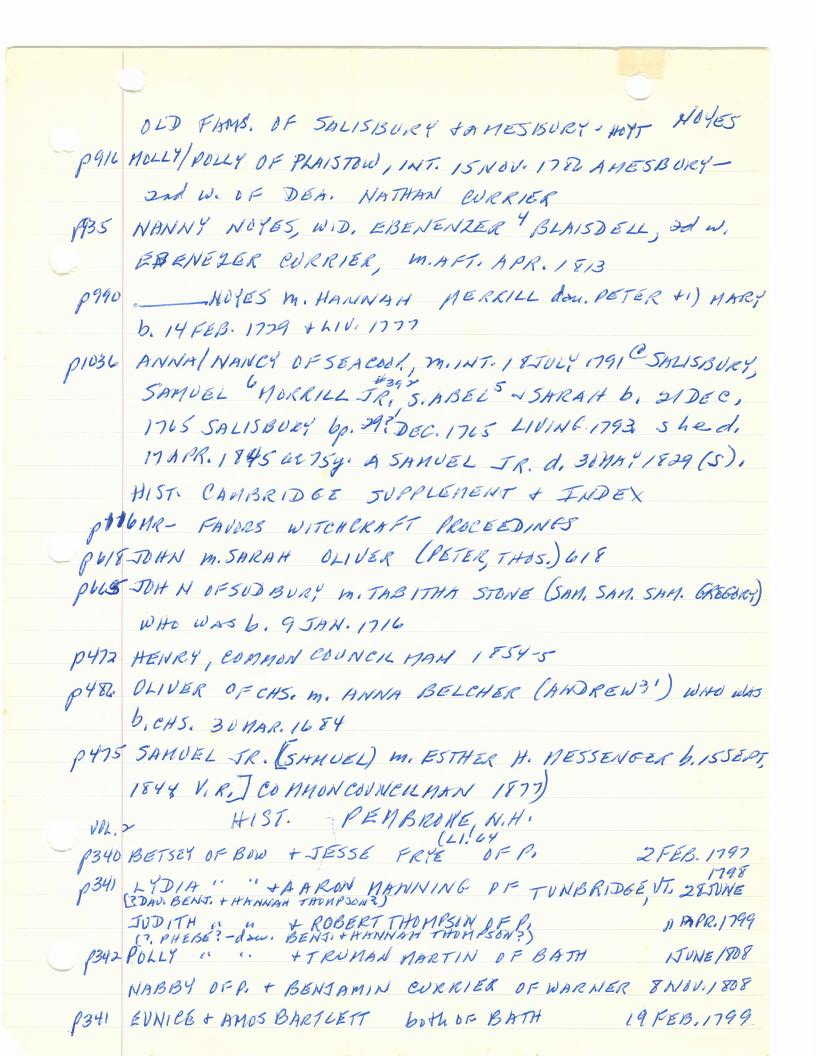 OLD FAMS. OF SALISBURY + AMESBURY - HOYT NOYES
p916 MOLLY/POLLY OF PLAISTOW, INT. 15 NOV. 1786 AMESBURY—
2nd W. OF DEA. NATHAN CURRIER
p935 NANNY NOYES, WID. EBENENZER 4 BLAISDELL, 2d W.
EBENEZER CURRIER, M. AFT. APR. 1813
p990 ______ NOYES M. HANNAH MERRILL dau. PETER + 1) MARY
b. 14 FEB. 1729 + LIV. 1777
p1036 ANNA/NANCY OF SEACOOK, M. INT. 18 JULY 1791 @ SALISBURY,
SAMUEL 6 MORRILL JR, #392 S. ABEL 5 + SARAH b. 21 DEC,
1765 SALISBURY bp. 29? DEC. 1765 LIVING 1793 she d.
17 APR. 1845 ae 75y. A SAMUEL JR. d. 30 MAY 1829 (S).
HIST. CAMBRIDGE SUPPLEMENT + INDEX
p116 MR— FAVORS WITCHCRAFT PROCEEDINGS
p618 JOHN M. SARAH OLIVER (PETER, THOS.) 618
p665 JOHN OF SUDBURY M. TABITHA STONE (SAM. SAM. SAM. GREGORY)
WHO WAS b. 9 JAN. 1716
p472 HENRY, COMMON COUNCIL MAN 1854-5
p486 OLIVER OF CHS. M. ANNA BELCHER (ANDREW 3,1) WHO WAS
b. CHS. 30 MAR. 1684
p475 SAMUEL JR. [SAMUEL) M. ESTHER H. MESSENGER b. 15 SEPT,
1844 V.R.] COMMON COUNCILMAN 1877)
VOL. 2 HIST. PEMBROKE, N.H.
p340 BETSEY OF BOW + JESSE FRYE OF P. 2 FEB. 1797
1798
p341 LYDIA " " + AARON MANNING OF TUNBRIDGE, VT. 28 JUNE
(? DAU. BENJ. + HANNAH THOMPSON?)
JUDITH " " + ROBERT THOMPSON OF P. 11 APR. 1799
(?. PHEBE? - dau. BENJ. + HANNAH THOMPSON?)
p342 POLLY " " + TRUMAN MARTIN OF BATH 1 JUNE 1808
NABBY OF P. + BENJAMIN CURRIER OF WARNER 8 NOV. 1808
p341 EUNICE + AMOS BARTLETT both OF BATH 19 FEB. 1799